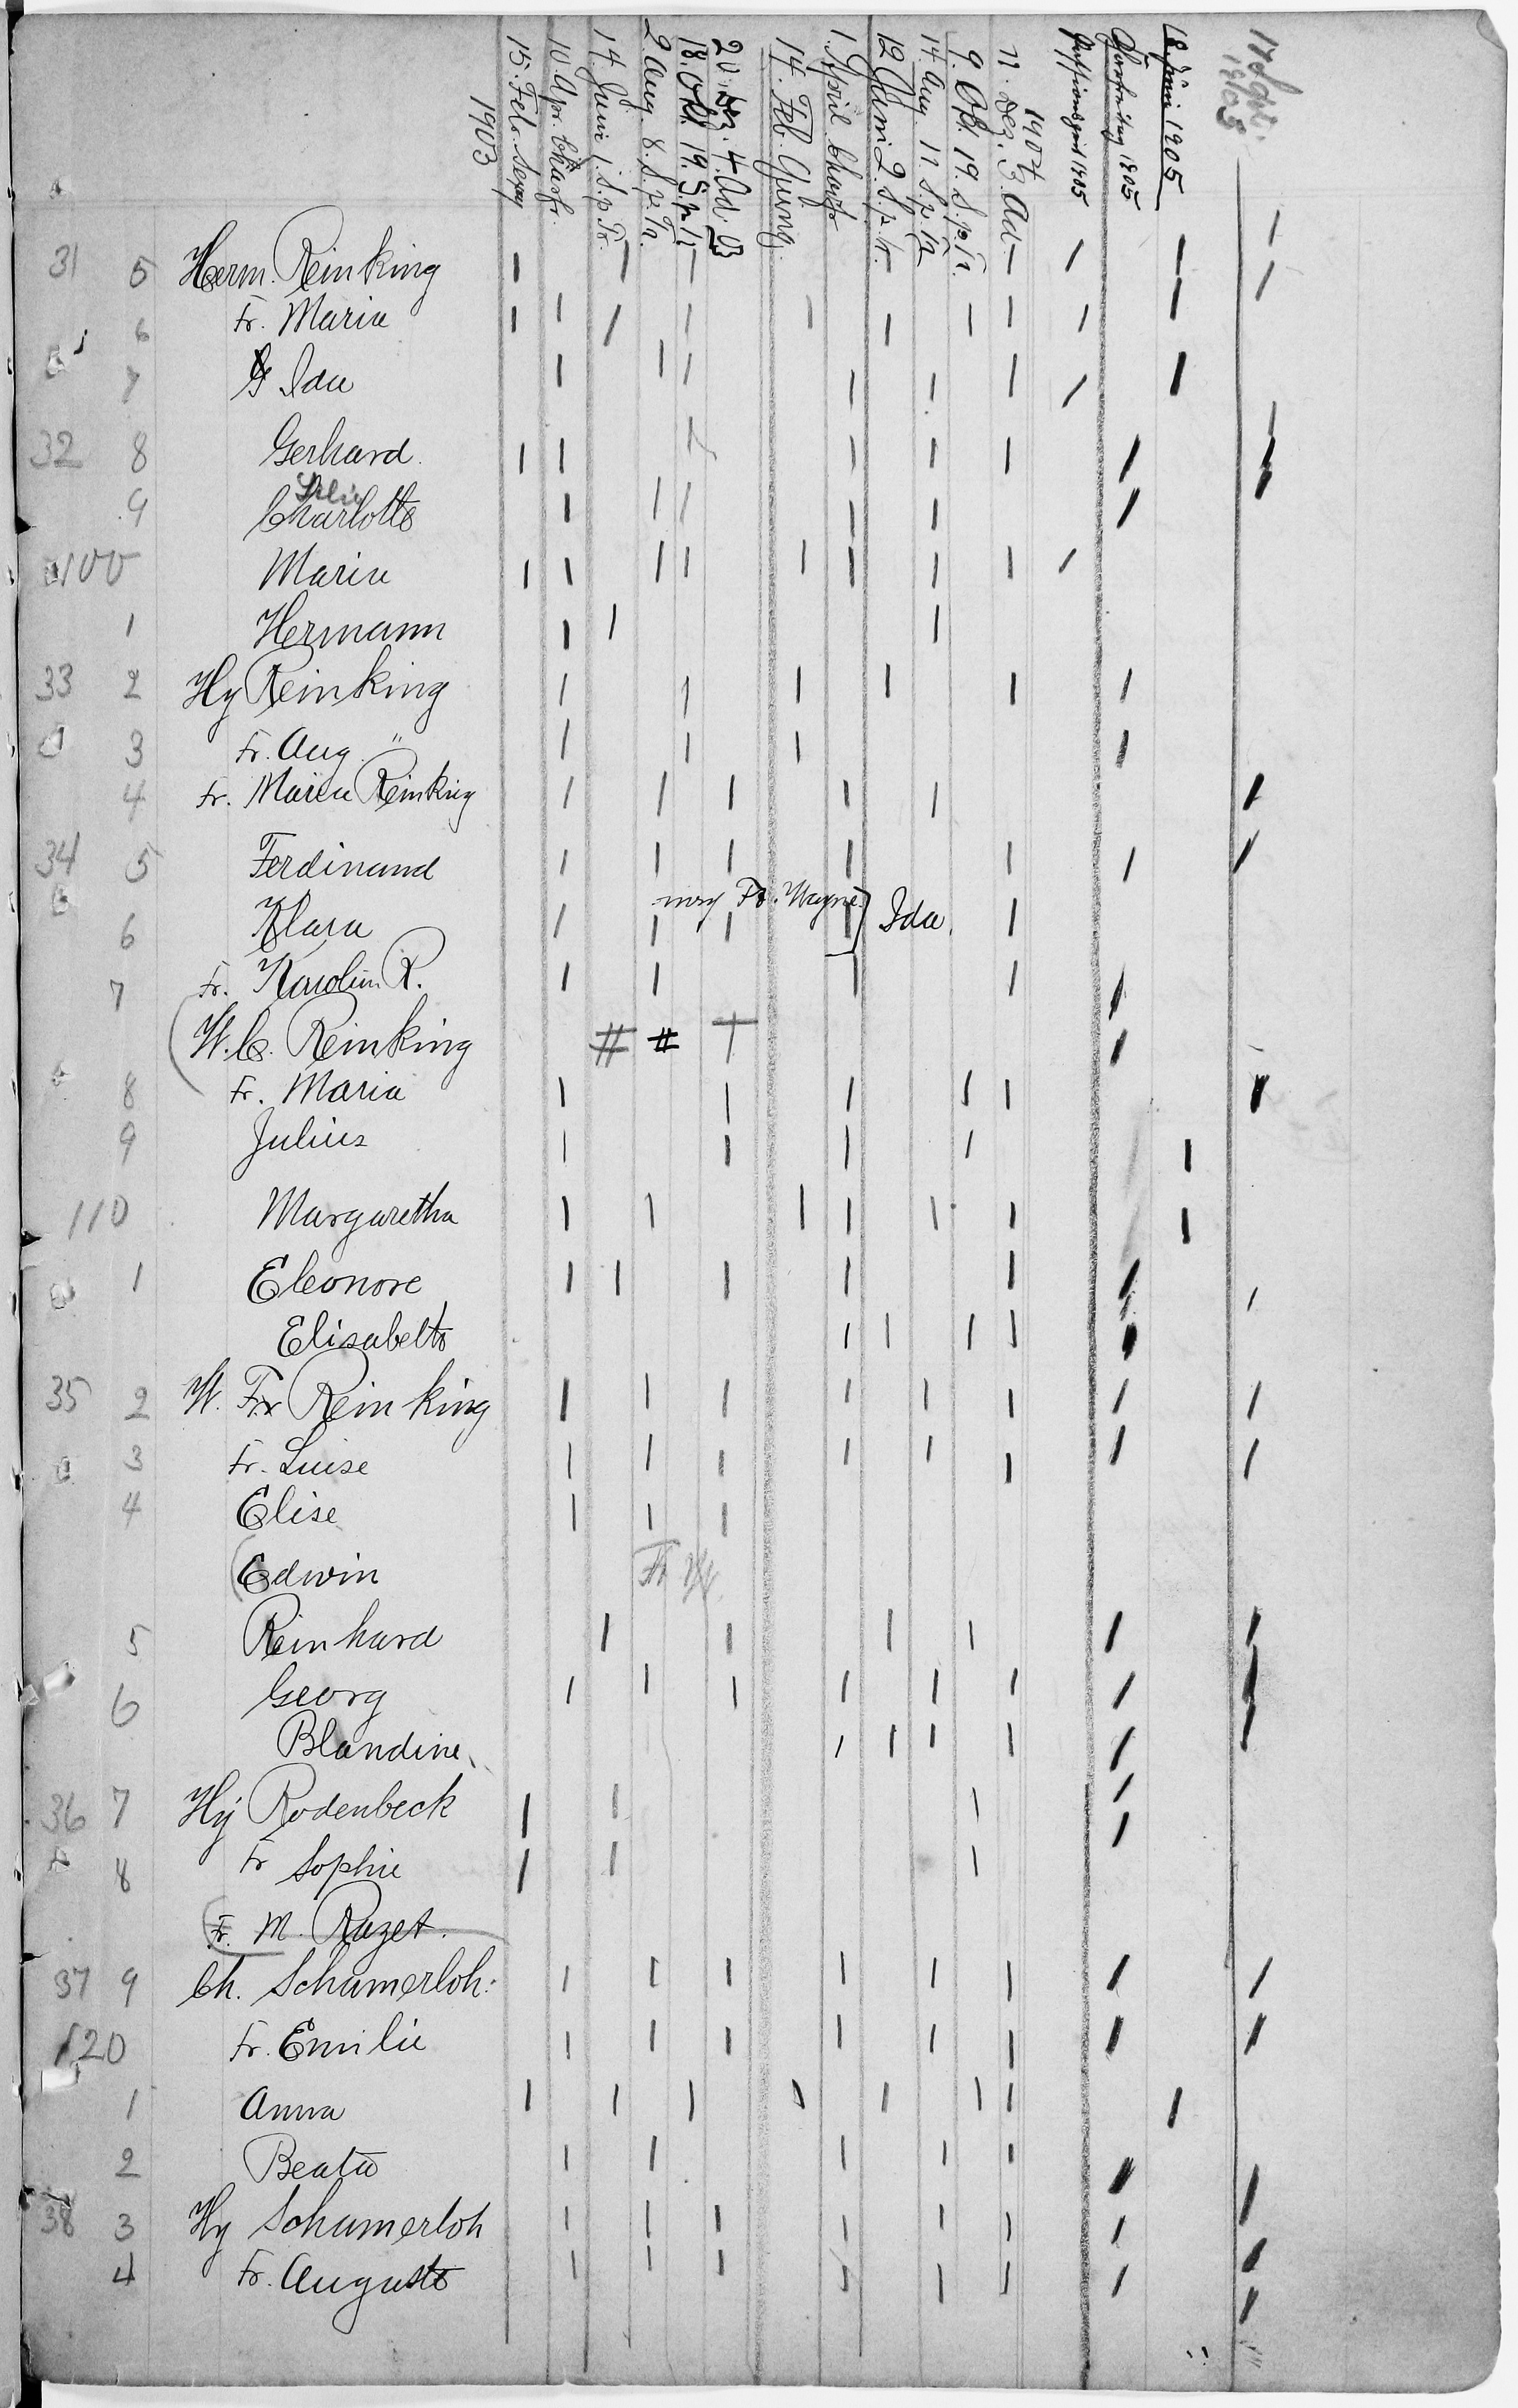 1903
15. Feb. Sexag
10. Apr. Charfr.
14. Juni 1. S. p. Tr.
2. Aug. 8. S. p. Tr.
18. Okt. 19. S. p. Tr.
20. 4. Ad. 03
14. Feb.
1. April Charf
12 Juni 2. S. p. tr.
14. Aug. 11. S. p. Tr.
9. Okt. 19. S. p. Tr.
1904
11. Dez. 3. Ad.
1905
Charfreitag 1905
18. Juni 1905
17 Sept. 1905
31 5 Herm. Reinking
6 Fr. Maria
7 Ida
32 8 Gerhard
9 Charlotte
100 Maria
1 Hermann
33 2 Hy Reinking
3 Fr. Aug. "
4 Fr. Maria Reinking
34 5 Ferdinand
Ft. Wayne
6 Klara Ida
7 Fr. Karolin R.
(W. C. Reinking # # †
8 Fr. Maria
9 Julius
110 Margaretha
1 Eleonore
Elisabeth
35 2 W. Fr Reinking
3 Fr. Luise
4 Elise
(Edwin Ft W.
5 Reinhard
6 Georg
Blandine
36 7 Hy Rodenbeck
8 Fr Sophie
(Fr. M. Razet.
37 9 Ch. Schumerloh:
120 Fr. Emilie
1 Anna
2 Beata
38 3 Hy Schumerloh
4 Fr. Auguste